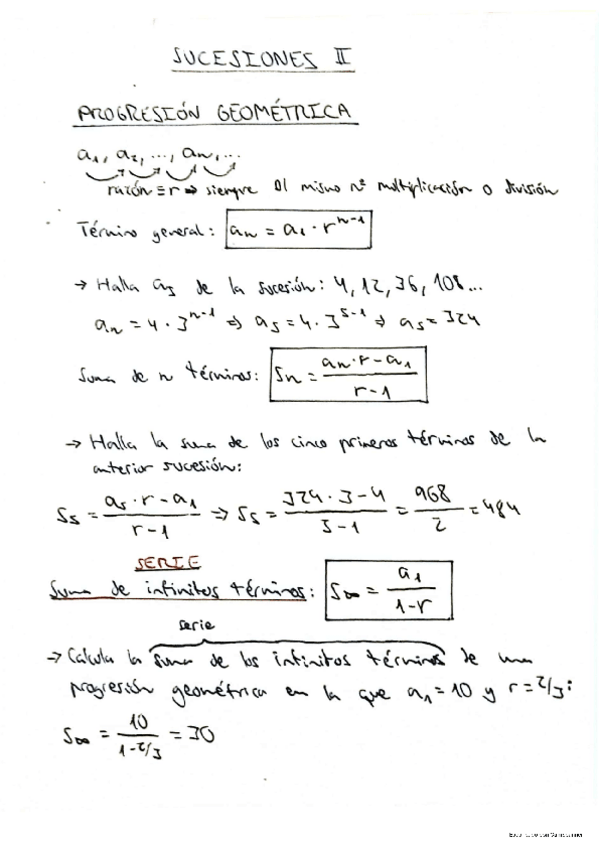 SUCESIONES II
PROGRESIÓN GEOMÉTRICA
a₁, a₂, ..., aₙ, ...
razón ≡ r ⇒ siempre el mismo nº multiplicación o división
Término general: aₙ = a₁ · rⁿ⁻¹
→ Halla a₅ de la sucesión: 4, 12, 36, 108...
aₙ = 4 · 3ⁿ⁻¹ ⇒ a₅ = 4 · 3⁵⁻¹ ⇒ a₅ = 324
Suma de n términos: Sₙ = (aₙ · r - a₁) / (r - 1)
→ Halla la suma de los cinco primeros términos de la
anterior sucesión:
S₅ = (a₅ · r - a₁) / (r - 1) ⇒ S₅ = (324 · 3 - 4) / (3 - 1) = 968 / 2 = 484
SERIE
Suma de infinitos términos: S∞ = a₁ / (1 - r)
serie
→ Calcula la suma de los infinitos términos de una
progresión geométrica en la que a₁ = 10 y r = 2/3:
S∞ = 10 / (1 - 2/3) = 30